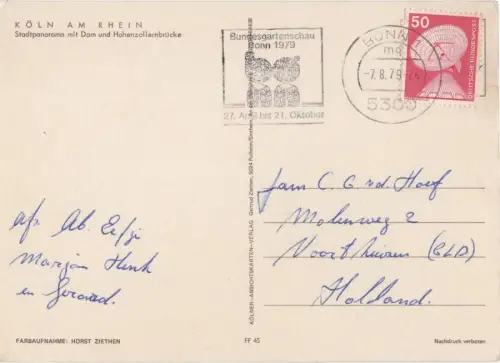 KÖLN AM RHEIN
Stadtpanorama mit Dom und Hohenzollernbrücke
Bundesgartenschau
Bonn 1979
27. April bis 21. Oktober
BONN
mg
-7.8.79
5300
50
DEUTSCHE BUNDESPOST
KÖLNER-ANSICHTSKARTEN-VERLAG
Fam C. G. v.d. Hoef
Molenweg 2
Voorthuizen (GLD)
Holland.
afz. Ab.
Marjan Henk
en Gerard.
FARBAUFNAHME: HORST ZIETHEN
FF 45
Nachdruck verboten